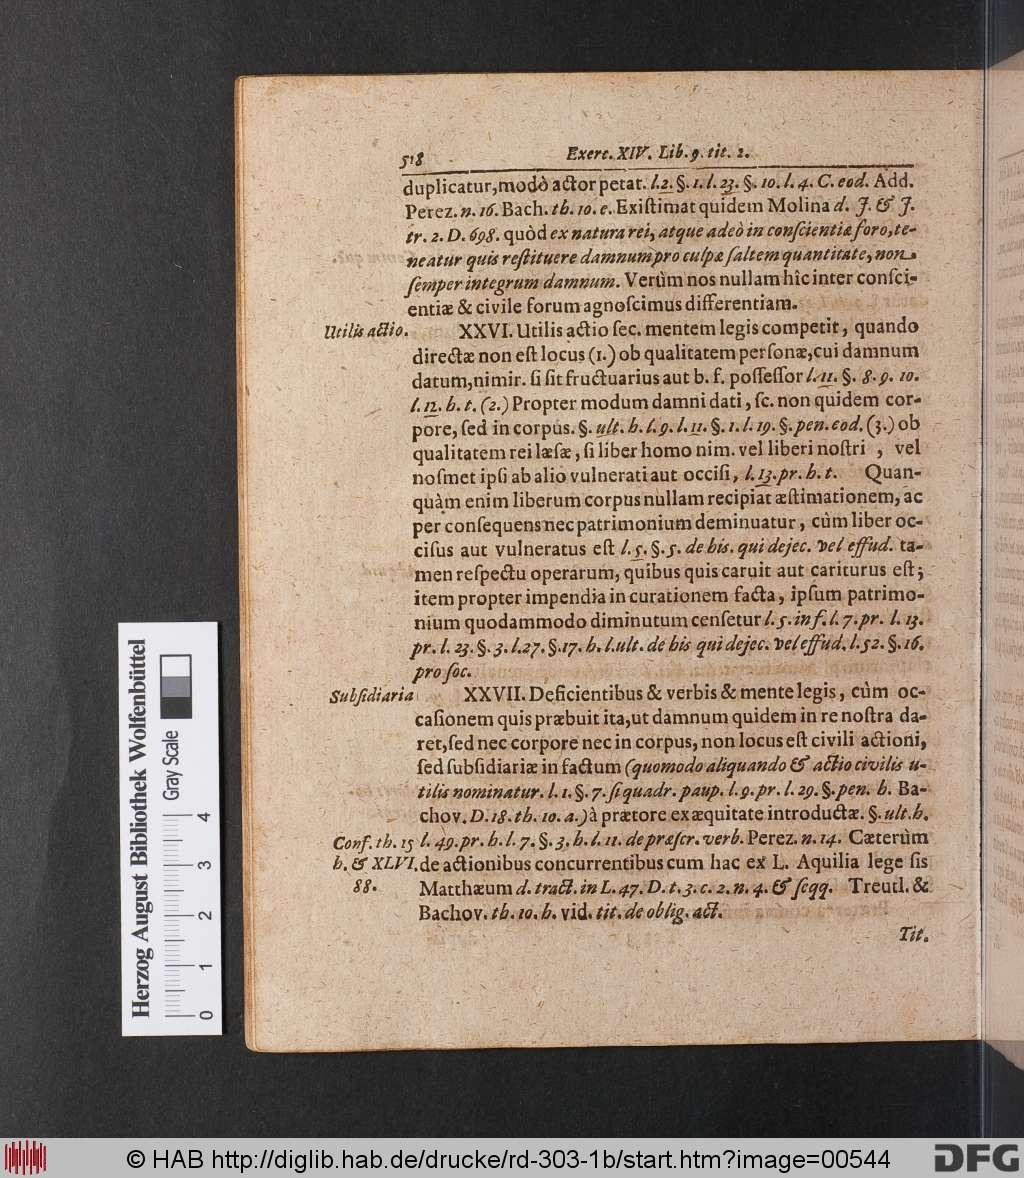 518 Exerc. XIV. Lib. 9. tit. 2.
duplicatur, modò actor petat. l. 2. §. 1. l. 23. §. 10. l. 4. C. eod. Add.
Perez. n. 16. Bach. th. 10. e. Existimat quidem Molina d. J. & J.
tr. 2. D. 698. quòd ex natura rei, atque adeò in conscientiæ foro, te-
neatur quis restituere damnum pro culpæ saltem quantitate, non
semper integrum damnum. Verùm nos nullam hîc inter consci-
entiæ & civile forum agnoscimus differentiam.
Utilis actio. XXVI. Utilis actio sec. mentem legis competit, quando
directæ non est locus (1.) ob qualitatem personæ, cui damnum
datum, nimir. si sit fructuarius aut b. f. possessor l. 11. §. 8. 9. 10.
l. 12. h. t. (2.) Propter modum damni dati, sc. non quidem cor-
pore, sed in corpus. §. ult. h. l. 9. l. 11. §. 1. l. 19. §. pen. eod. (3.) ob
qualitatem rei læsæ, si liber homo nim. vel liberi nostri, vel
nosmet ipsi ab alio vulnerati aut occisi, l. 13. pr. h. t. Quan-
quàm enim liberum corpus nullam recipiat æstimationem, ac
per consequens nec patrimonium deminuatur, cùm liber oc-
cisus aut vulneratus est l. 5. §. 5. de his. qui dejec. vel effud. ta-
men respectu operarum, quibus quis caruit aut cariturus est;
item propter impendia in curationem facta, ipsum patrimo-
nium quodammodo diminutum censetur l. 5. in f. l. 7. pr. l. 13.
pr. l. 23. §. 3. l. 27. §. 17. h. l. ult. de his qui dejec. vel effud. l. 52. §. 16.
pro soc.
Subsidiaria XXVII. Deficientibus & verbis & mente legis, cùm oc-
casionem quis præbuit ita, ut damnum quidem in re nostra da-
ret, sed nec corpore nec in corpus, non locus est civili actioni,
sed subsidiariæ in factum (quomodo aliquando & actio civilis u-
tilis nominatur. l. 1. §. 7. si quadr. paup. l. 9. pr. l. 29. §. pen. h. Ba-
chov. D. 18. th. 10. a.) à prætore ex æquitate introductæ. §. ult. h.
Conf. th. 15 l. 49. pr. h. l. 7. §. 3. h. l. 11. de præscr. verb. Perez. n. 14. Cæterùm
h. & XLVI. de actionibus concurrentibus cum hac ex L. Aquilia lege sis
88. Matthæum d. tract. in L. 47. D. t. 3. c. 2. n. 4. & seqq. Treutl. &
Bachov. th. 10. h. vid. tit. de oblig. act.
Tit.
Herzog August Bibliothek Wolfenbüttel
Gray Scale
0 1 2 3 4
© HAB http://diglib.hab.de/drucke/rd-303-1b/start.htm?image=00544
DFG